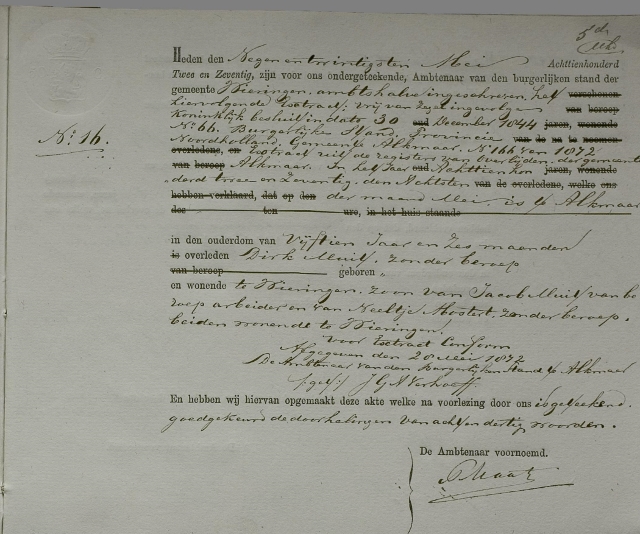 5d
Heden den Negen en twintigsten Mei Achttienhonderd
Twee en Zeventig, zijn voor ons ondergeteekende, Ambtenaar van den burgerlijken stand der
gemeente Wieringen, ambtshalve ingeschreven het verschenen
hiervolgende Extract; vrij van Zegel ingevolge van beroep
Koninklijk besluit in dato 30 oud December 1844 jaren, wonende
No 16.
No 66. Burgerlijke Stand, Provincie van de na te noemen
Noordholland, Gemeente Alkmaar. N. 166 van 1872
overledene, en Extract uit de registers van Overlijden der gemeente
van beroep Alkmaar. In het Jaar oud Achttienhon jaren, wonende
derd twee en Zeventig, den Achtsten van de overledene, welke ons
hebben verklaard, dat op den der maand Mei is te Alkmaar
des ten ure, in het huis staande
in den ouderdom van Vijftien Jaar en Zes maanden
is overleden Dirk Muis, zonder beroep
van beroep geboren
en wonende te Wieringen, zoon van Jacob Muis van be
roep arbeider en van Neeltje Mostert, zonder beroep,
beiden wonende te Wieringen.
Voor Extract Conform
Afgegeven den 20 Mei 1872
De Ambtenaar van den Burgerlijken Stand te Alkmaar
(get:) Verhoeff
En hebben wij hiervan opgemaakt deze akte welke na voorlezing door ons is geteekend.
goedgekeurd de doorhalingen van acht en dertig woorden.
De Ambtenaar voornoemd.